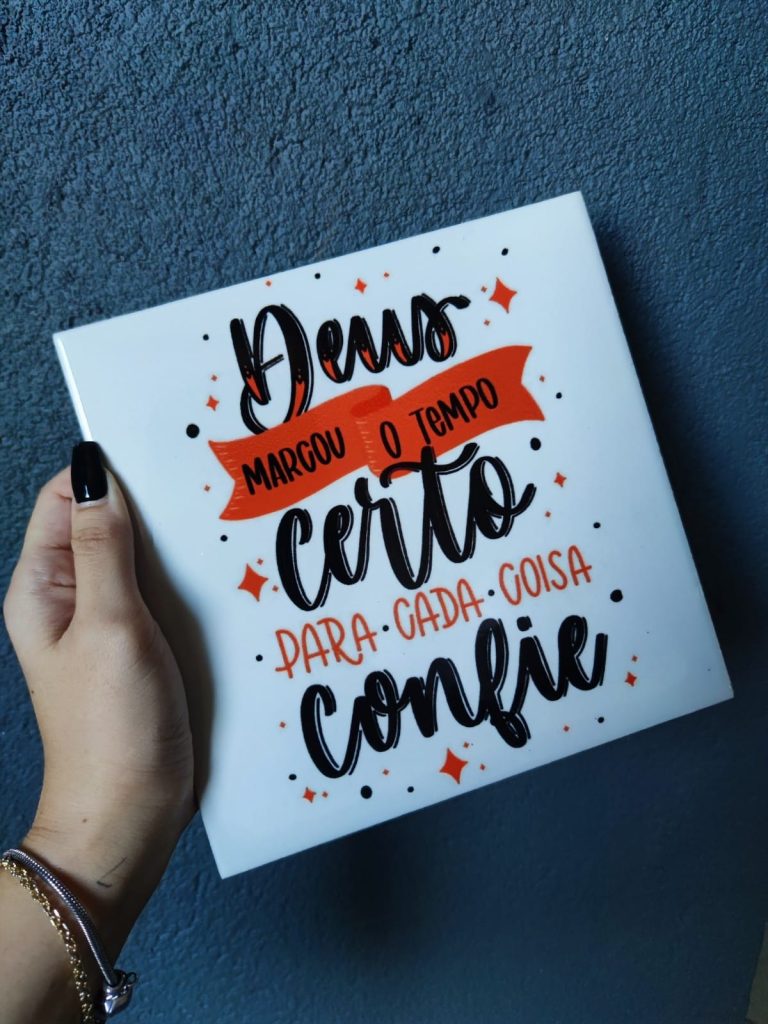 Deus
MARCOU O TEMPO
certo
PARA·CADA·COISA
confie